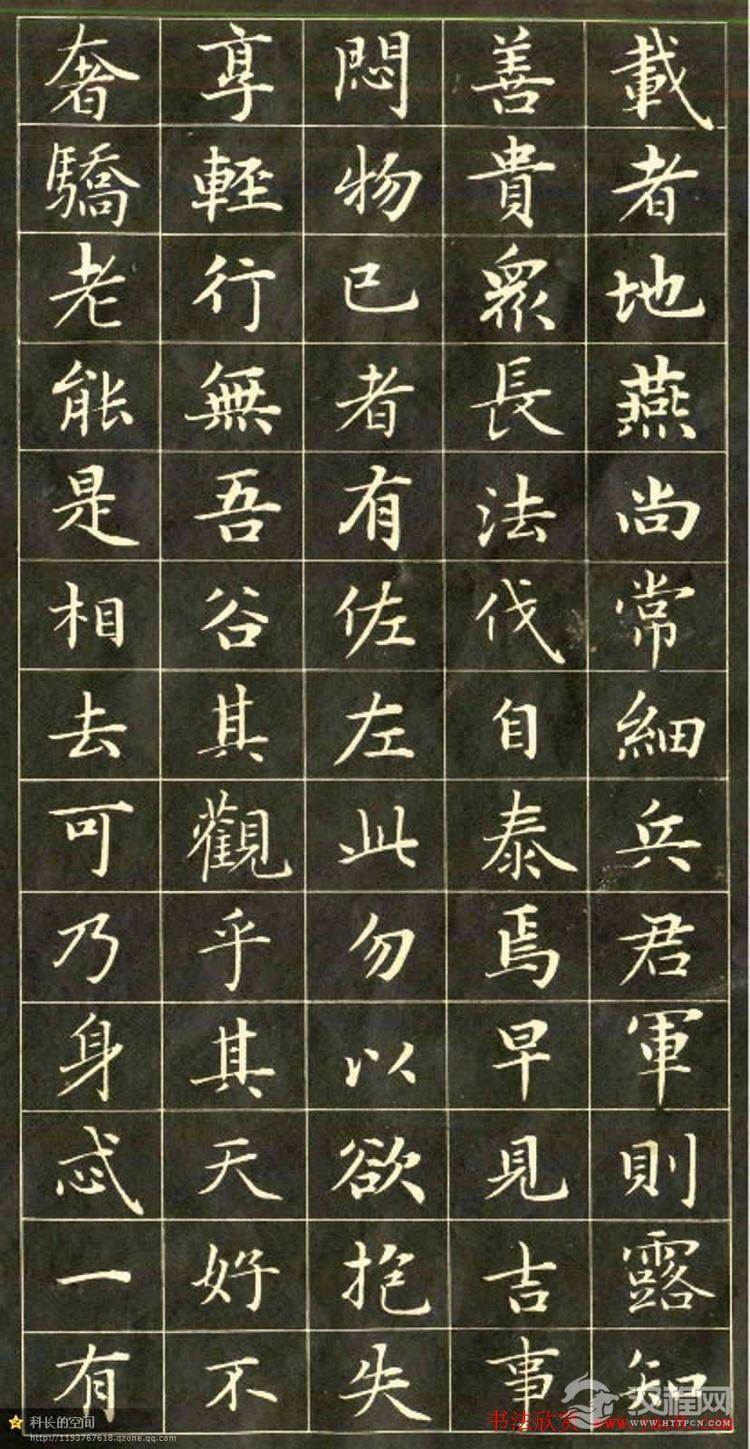 載者地燕尚常細兵君軍則露知
善貴眾長法伐自泰焉早見吉事
悶物已者有佐左此勿以欲抱失
享輕行無吾谷其觀乎其天好不
奢驕老能是相去可乃身忒一有
科长的空间
http://1193767618.qzone.qq.com
书法欣赏
汉程网
WWW.HTTPCN.COM